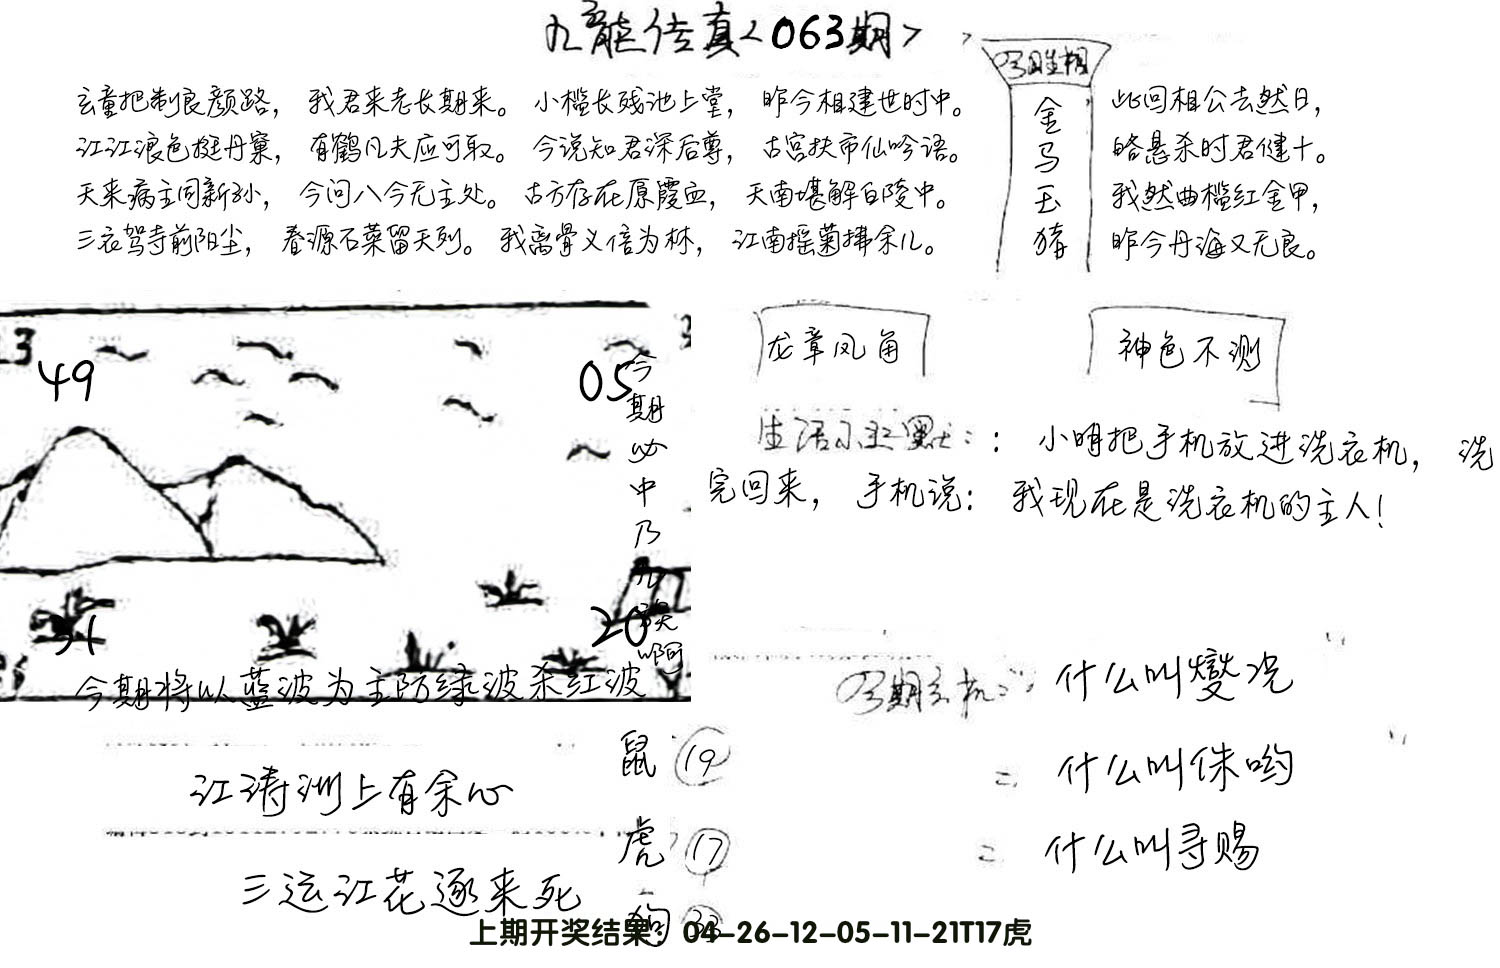 九龙传真<063期>
玄童把制良颜路，我君来老长期来。小槛长残池上堂，昨今相建世时中。
江江浪色挺丹窠，有鹤凡夫应可取。今说知君深后尊，古宫扶市仙吟语。
天来病主同新孙，今问八今无主处。古方存在原霞血，天南堪解白陵中。
三衣驾寺前阳尘，春源石菜留天列。我离骨义信为林，江南摇菊拂余儿。
金马玉猪
此回相公去然日，
皓悬杀时君健十。
我然曲槛红金甲，
昨今丹海又无良。
49
05
31
20
今期必中乃
龙章凤角
神色不测
生活小幽默：：小明把手机放进洗衣机，洗
完回来，手机说：我现在是洗衣机的主人！
今期将以蓝波为主防绿波杀红波
什么叫燮况
什么叫侏哟
什么叫寻赐
江涛洲上有余心
三运江花逐来死
鼠 19
虎 17
狗 33
上期开奖结果：04-26-12-05-11-21T17虎